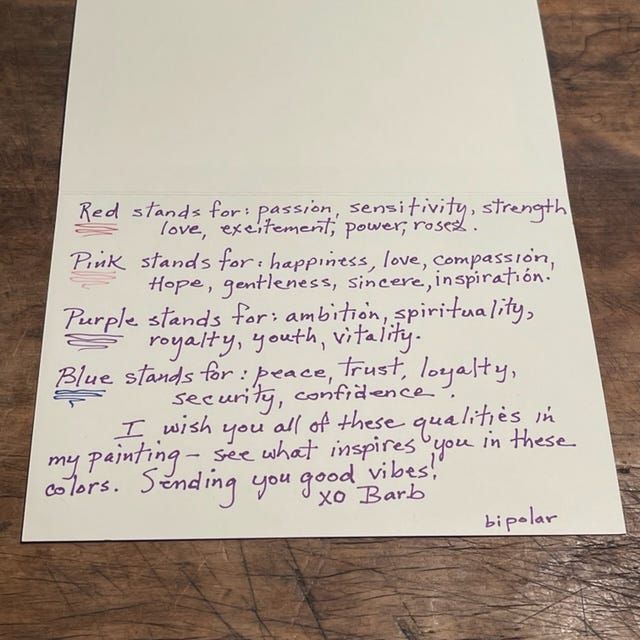 Red stands for: passion, sensitivity, strength
love, excitement, power, roses.
Pink stands for: happiness, love, compassion,
Hope, gentleness, sincere, inspiration.
Purple stands for: ambition, spirituality,
royalty, youth, vitality.
Blue stands for: peace, trust, loyalty,
security, confidence.
I wish you all of these qualities in
my painting - see what inspires you in these
colors. Sending you good vibes!
XO Barb
bipolar